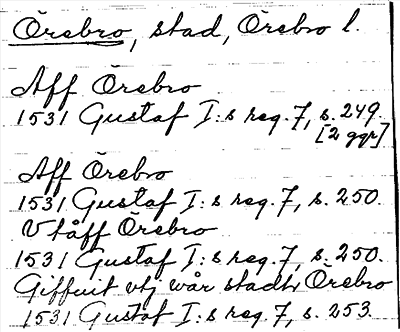 Örebro, stad, Örebro l.
Aff Örebro
1531 Gustaf I:s reg. 7, s. 249.
[2 ggr]
Aff Örebro
1531 Gustaf I:s reg. 7, s. 250.
Vtåff Örebro
1531 Gustaf I:s reg. 7, s. 250.
Giffuit vtj wår stadt, Örebro
1531 Gustaf I:s reg. 7, s. 253.